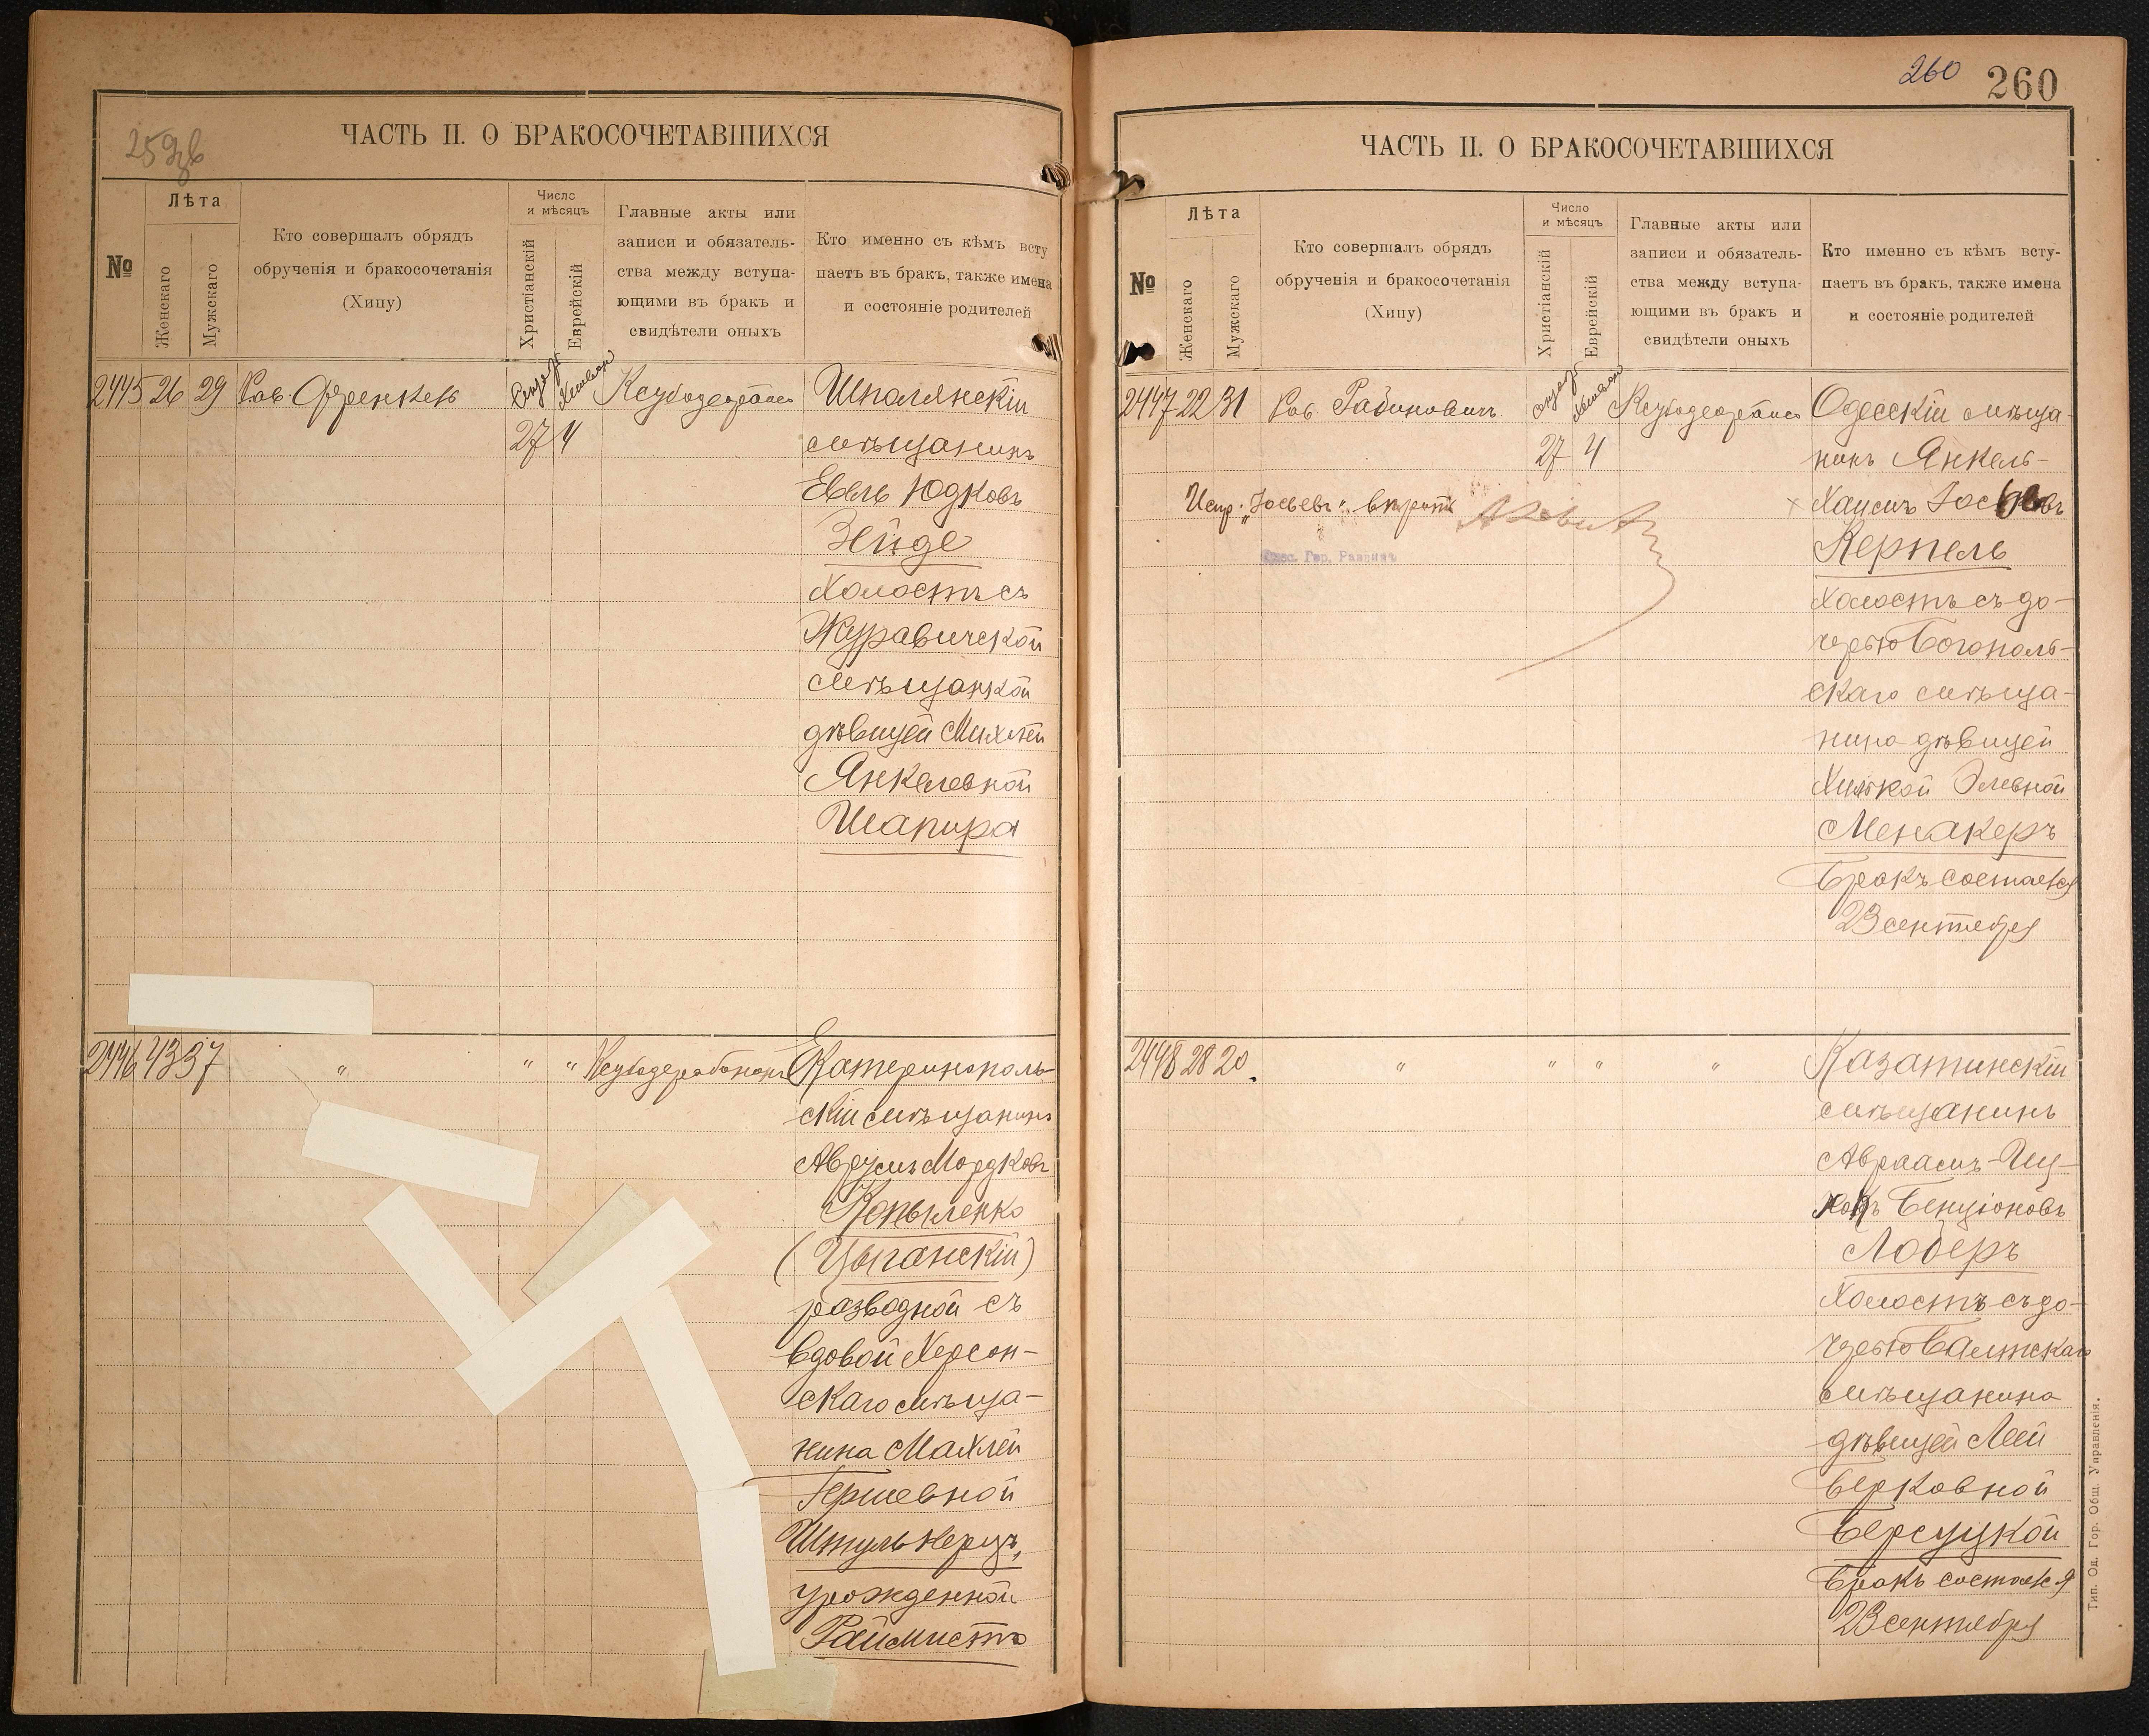 259 об
ЧАСТЬ II. О БРАКОСОЧЕТАВШИХСЯ
№
Лѣта
Женскаго
Мужскаго
Кто совершалъ обрядъ
обрученія и бракосочетанія
(Хипу)
Число
и мѣсяцъ
Христіанскій
Еврейскій
Главные акты или
записи и обязатель-
ства между вступа-
ющими въ бракъ и
свидѣтели оныхъ
Кто именно съ кѣмъ всту
паетъ въ бракъ, также имена
и состояніе родителей
2445 26 29 Рав. Френкель
27 4
Шполянскій
мѣщанинъ
Евель Юдковъ
Зейде
холостъ съ
Журавичской
мѣщанкой
дѣвицей Михлей
Янкелевной
Шапира
2446 43 37 " " "
Екатеринополь-
скій мѣщанинъ
Аврумъ Мордковъ
Копыленко
(Цыганскій)
разводной съ
вдовой Херсон-
скаго мѣща-
нина Махлей
Гершевной
Штульнерцъ,
урожденной
Раймистъ
260 260
ЧАСТЬ II. О БРАКОСОЧЕТАВШИХСЯ
№
Лѣта
Женскаго
Мужскаго
Кто совершалъ обрядъ
обрученія и бракосочетанія
(Хипу)
Число
и мѣсяцъ
Христіанскій
Еврейскій
Главные акты или
записи и обязатель-
ства между вступа-
ющими въ бракъ и
свидѣтели оныхъ
Кто именно съ кѣмъ всту-
паетъ въ бракъ, также имена
и состояніе родителей
2447 22 31 Рав. Рабиновичъ
27 4
Испр. "Іосьевъ"
Одес. Гор. Раввинъ
Одесскій мѣща-
нинъ Янкель-
Хаимъ Іосьевъ
Керпель
холостъ съ до-
черью Богополь-
скаго мѣща-
нина дѣвицей
Элевной
Менакеръ
Бракъ состоялся
23 сентября
2448 28 20 " " " "
Казатинскій
мѣщанинъ
Авраамъ-Иц-
хокъ Бенціоновъ
Лоберъ
холостъ съ до-
черью Балтскаго
мѣщанина
дѣвицей Леей
Берковной
Берсуцкой
Бракъ состоялся
23 сентября
Тип. Од. Гор. Общ. Управленія.